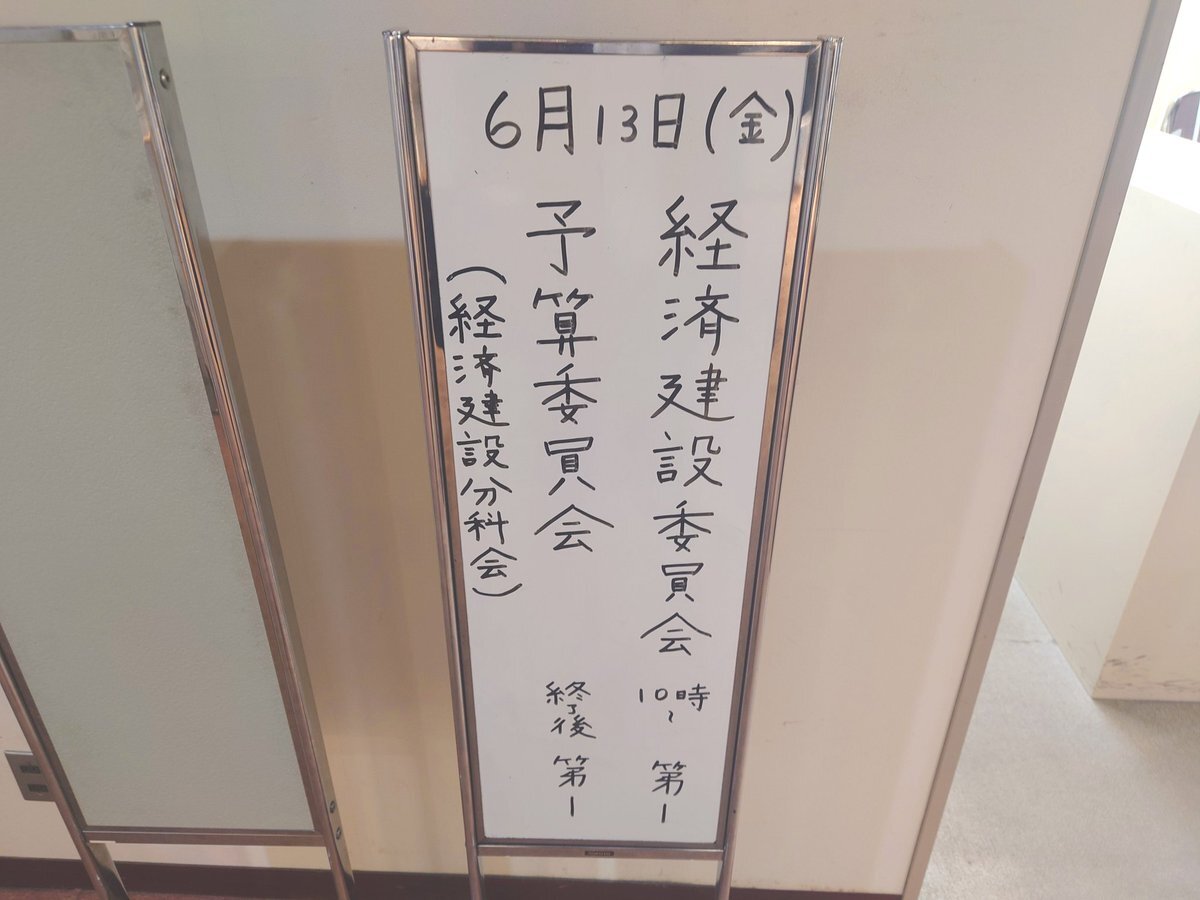 6月13日(金)
経済建設委員会 10時~ 第1
予算委員会 終了後 第1
(経済建設分科会)